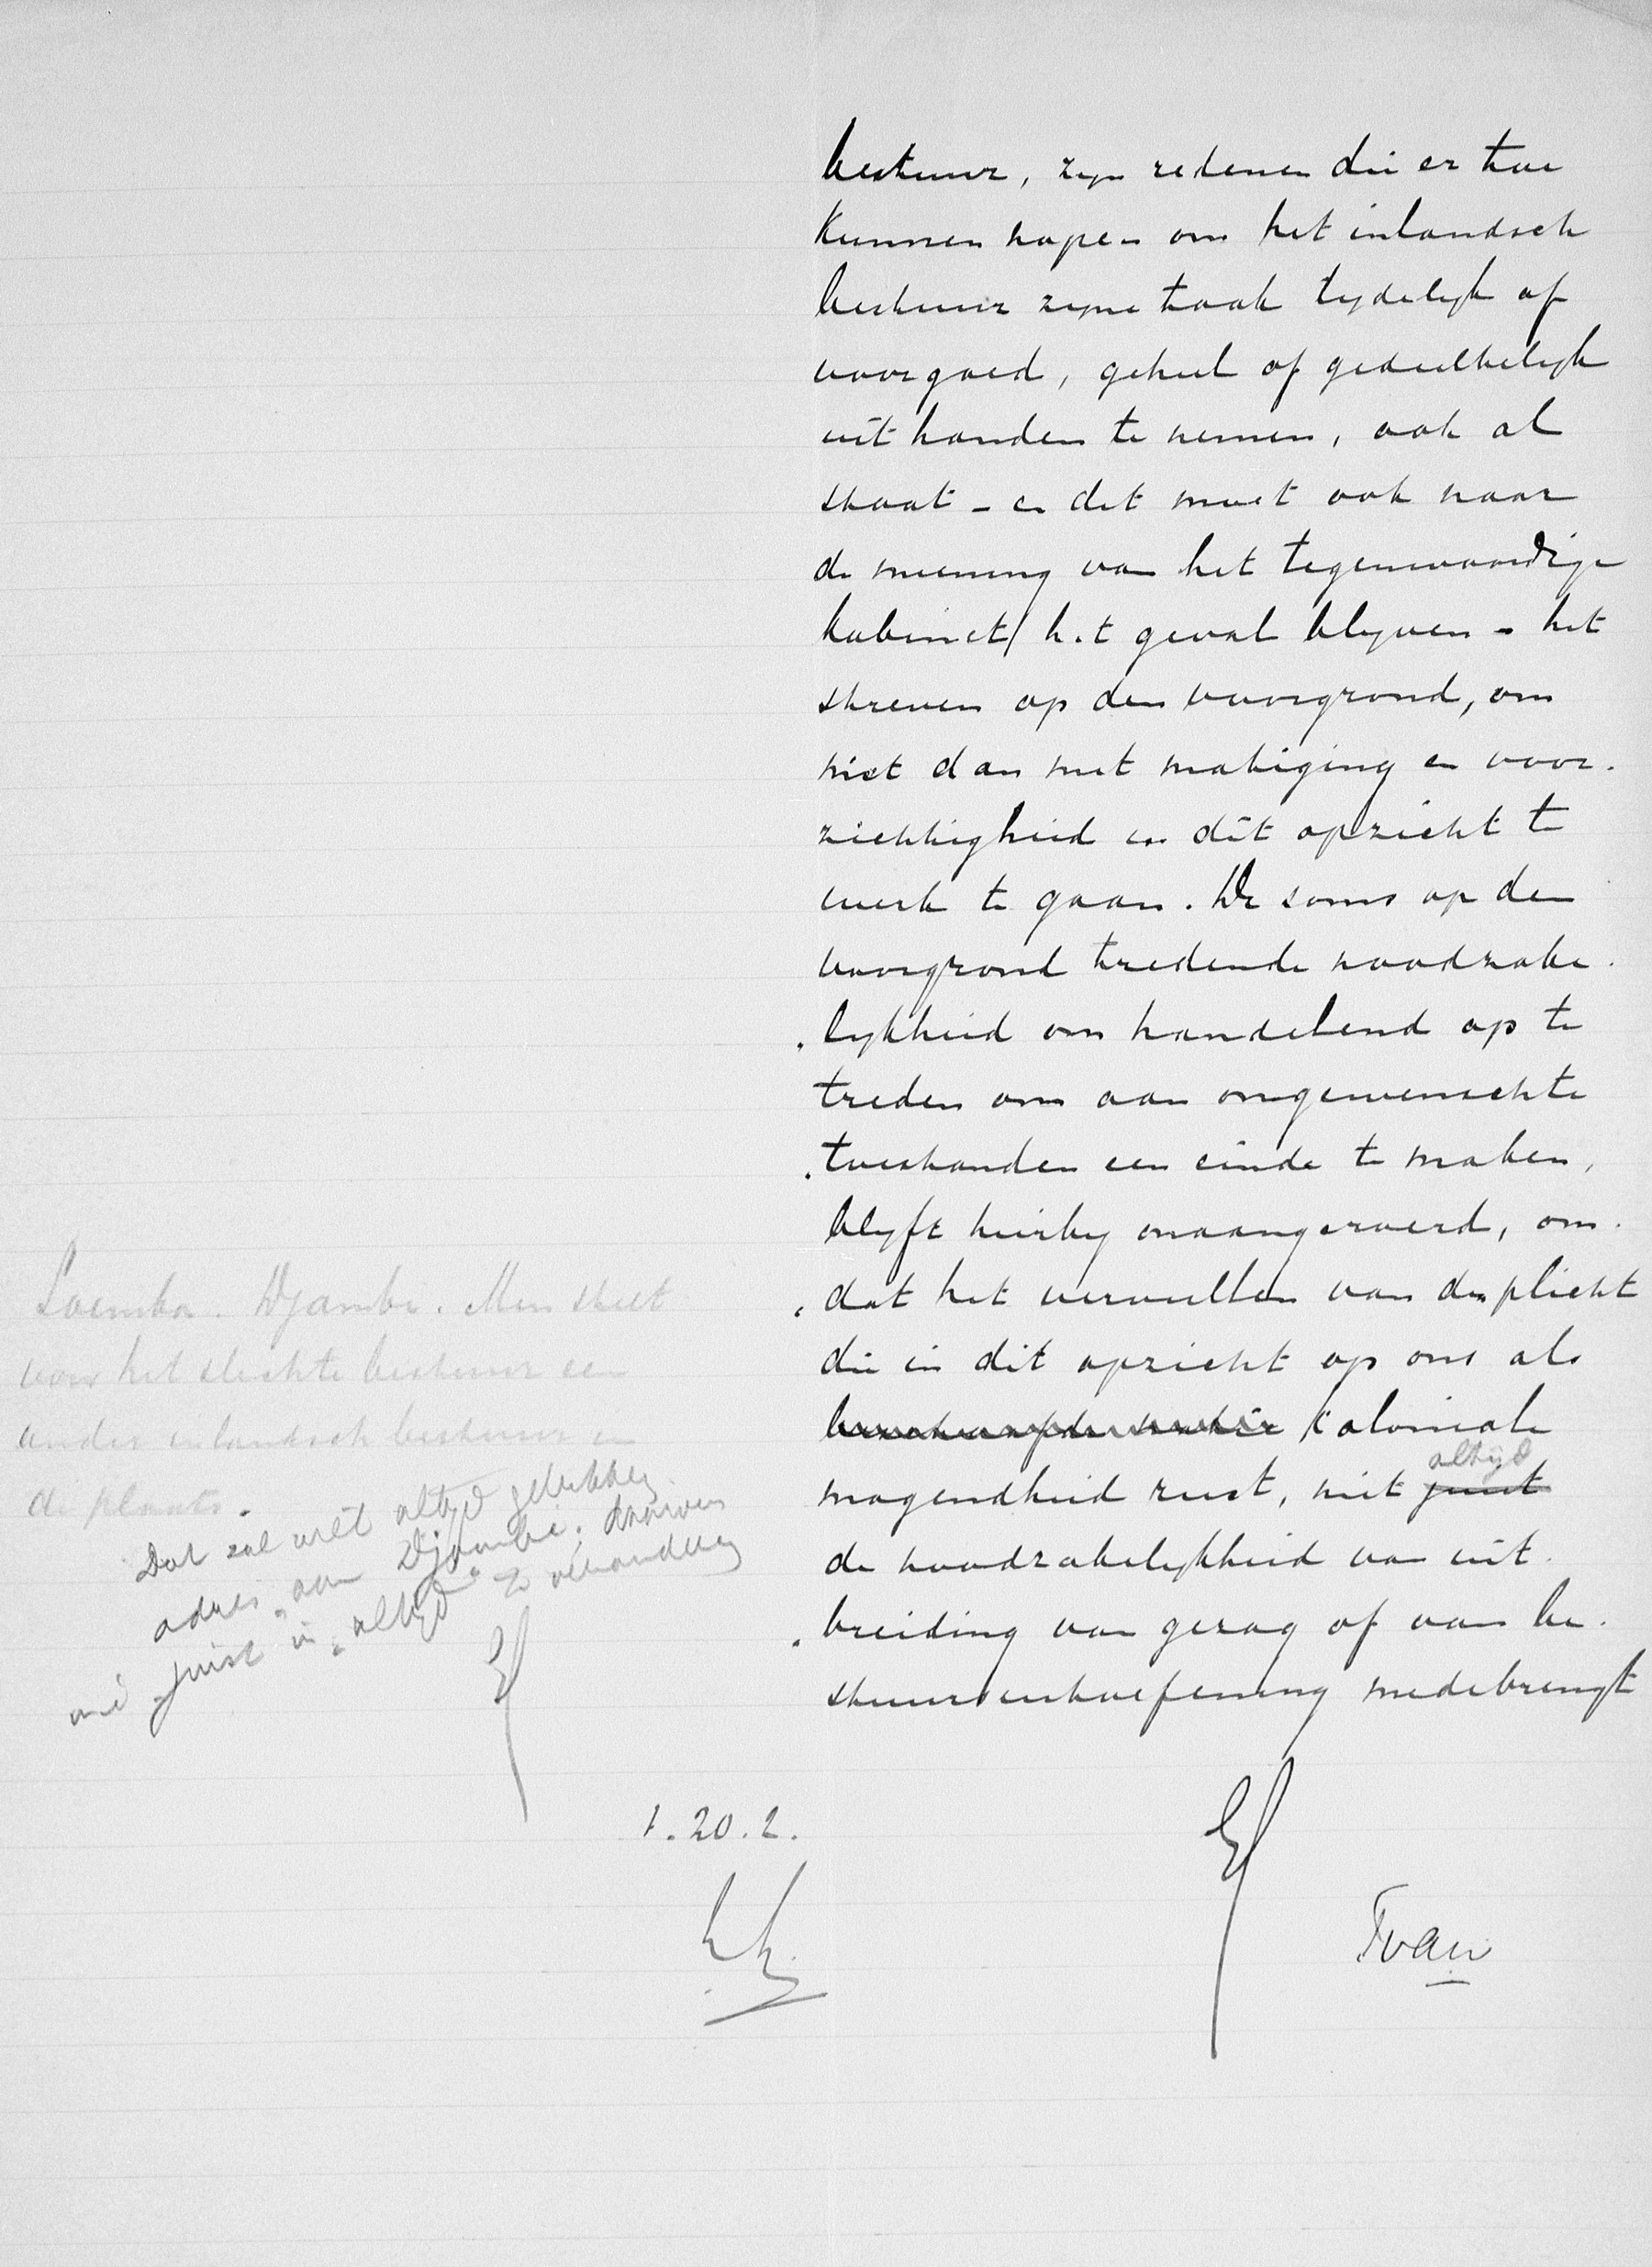 bestuur, zijn redenen die er toe
kunnen nopen om het inlandsch
bestuur zijne taak tijdelijk of
voorgoed, geheel of gedeeltelijk
uit handen te nemen, ook al
staat - en dit moet ook naar
de meening van het tegenwoordige
kabinet het geval blijven - het
streven op den voorgrond, om
niet dan met matiging en voor-
zichtigheid in dit opzicht te
werk te gaan. De soms op den
voorgrond tredende noodzake-
lijkheid om handelend op te
treden om aan ongewenschte
toestanden een einde te maken,
blijft hierbij onaangeroerd, om-
dat het vervullen van den plicht
die in dit opzicht op ons als
koloniale
altijd
mogendheid rust, niet juist
de noodzakelijkheid van uit-
breiding van gezag of van be-
stuursuitoefening medebrengt
Soemba. Djambi. Men stelt
voor het slechte bestuur een
ander inlandsch bestuur in
de plaats.
Dat zal niet altijd gelukken
adres aan Djambi. Daarom
juist in "altijd" te veranderen
1.20.2.